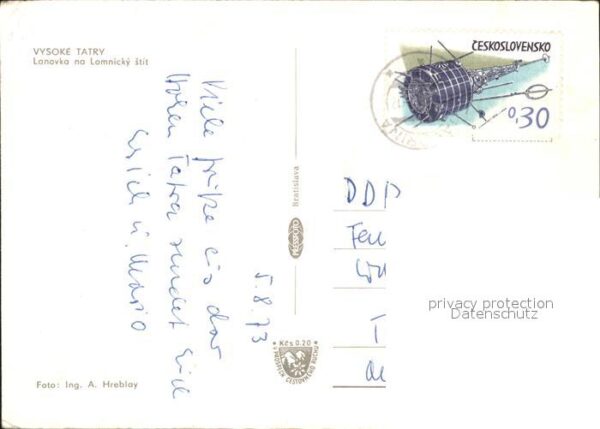 VYSOKÉ TATRY
Lanovka na Lomnický štít
Viele Grüße aus der
Hohen Tatra sendet Euch
Erich u. Mario
5.8.73
Foto: Ing. A. Hreblay
PRESSFOTO
Bratislava
Kčs 0.20
V PROSPĚCH CESTOVNÉHO RUCHU
ČESKOSLOVENSKO
0,30
DDR
privacy protection
Datenschutz